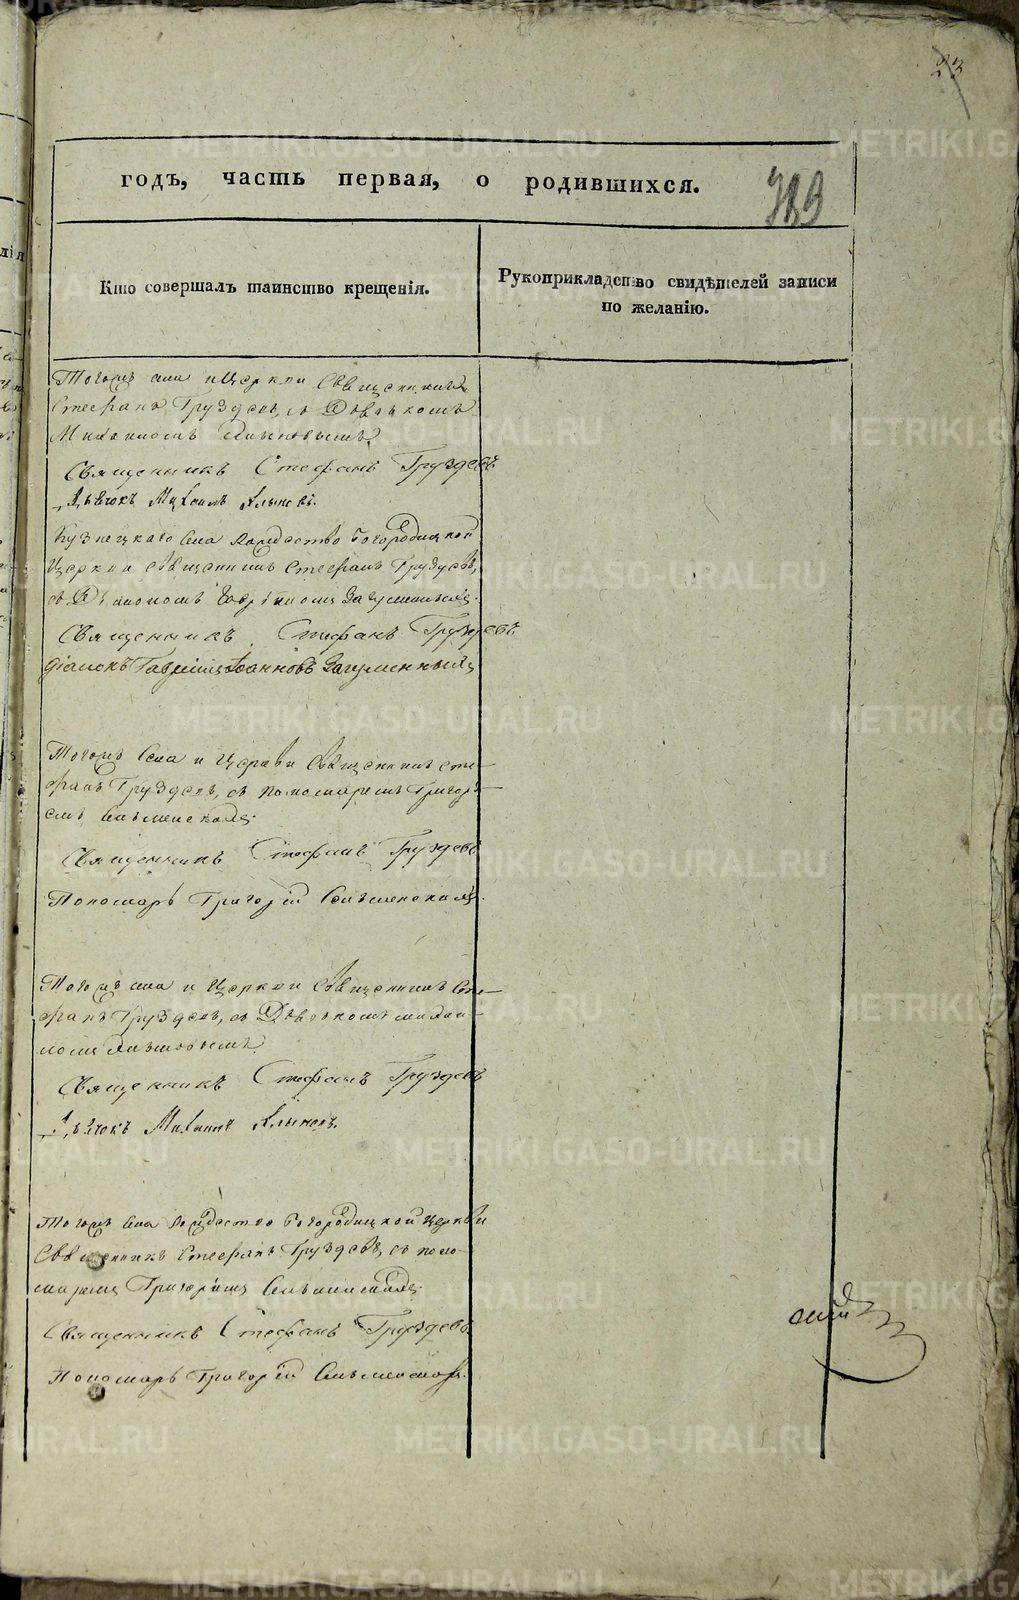 23
годъ, часть первая, о родившихся.
Кто совершалъ таинство крещенія.
Рукоприкладство свидѣтелей записи
по желанію.
Тогожъ села и Церкви Священникъ
Стефанъ Груздевъ, съ Дьячкомъ
Священникъ Стефанъ Груздевъ
Дьячокъ Михаилъ
Кузнецкаго села Рождество Богородицкой
Церкви священникъ Стефанъ Груздевъ,
съ Діакономъ
Священникъ Стефанъ Груздевъ
діаконъ Гавріилъ Іоанновъ Загуменныхъ
Тогожъ села и Церкви Священникъ Сте-
фанъ Груздевъ, съ пономаремъ Григорі-
емъ
Священникъ Стефанъ Груздевъ
Пономарь Григорій
Тогожъ села и Церкви Священникъ Сте-
фанъ Груздевъ, съ Дьячкомъ Михаи-
ломъ
Священникъ Стефанъ Груздевъ
Дьячокъ Михаилъ
Тогожъ села Рождество Богородицкой Церкви
Священникъ Стефанъ Груздевъ, съ поно-
маремъ Григоріемъ
Священникъ Стефанъ Груздевъ
Пономарь Григорій
METRIKI.GASO-URAL.RU